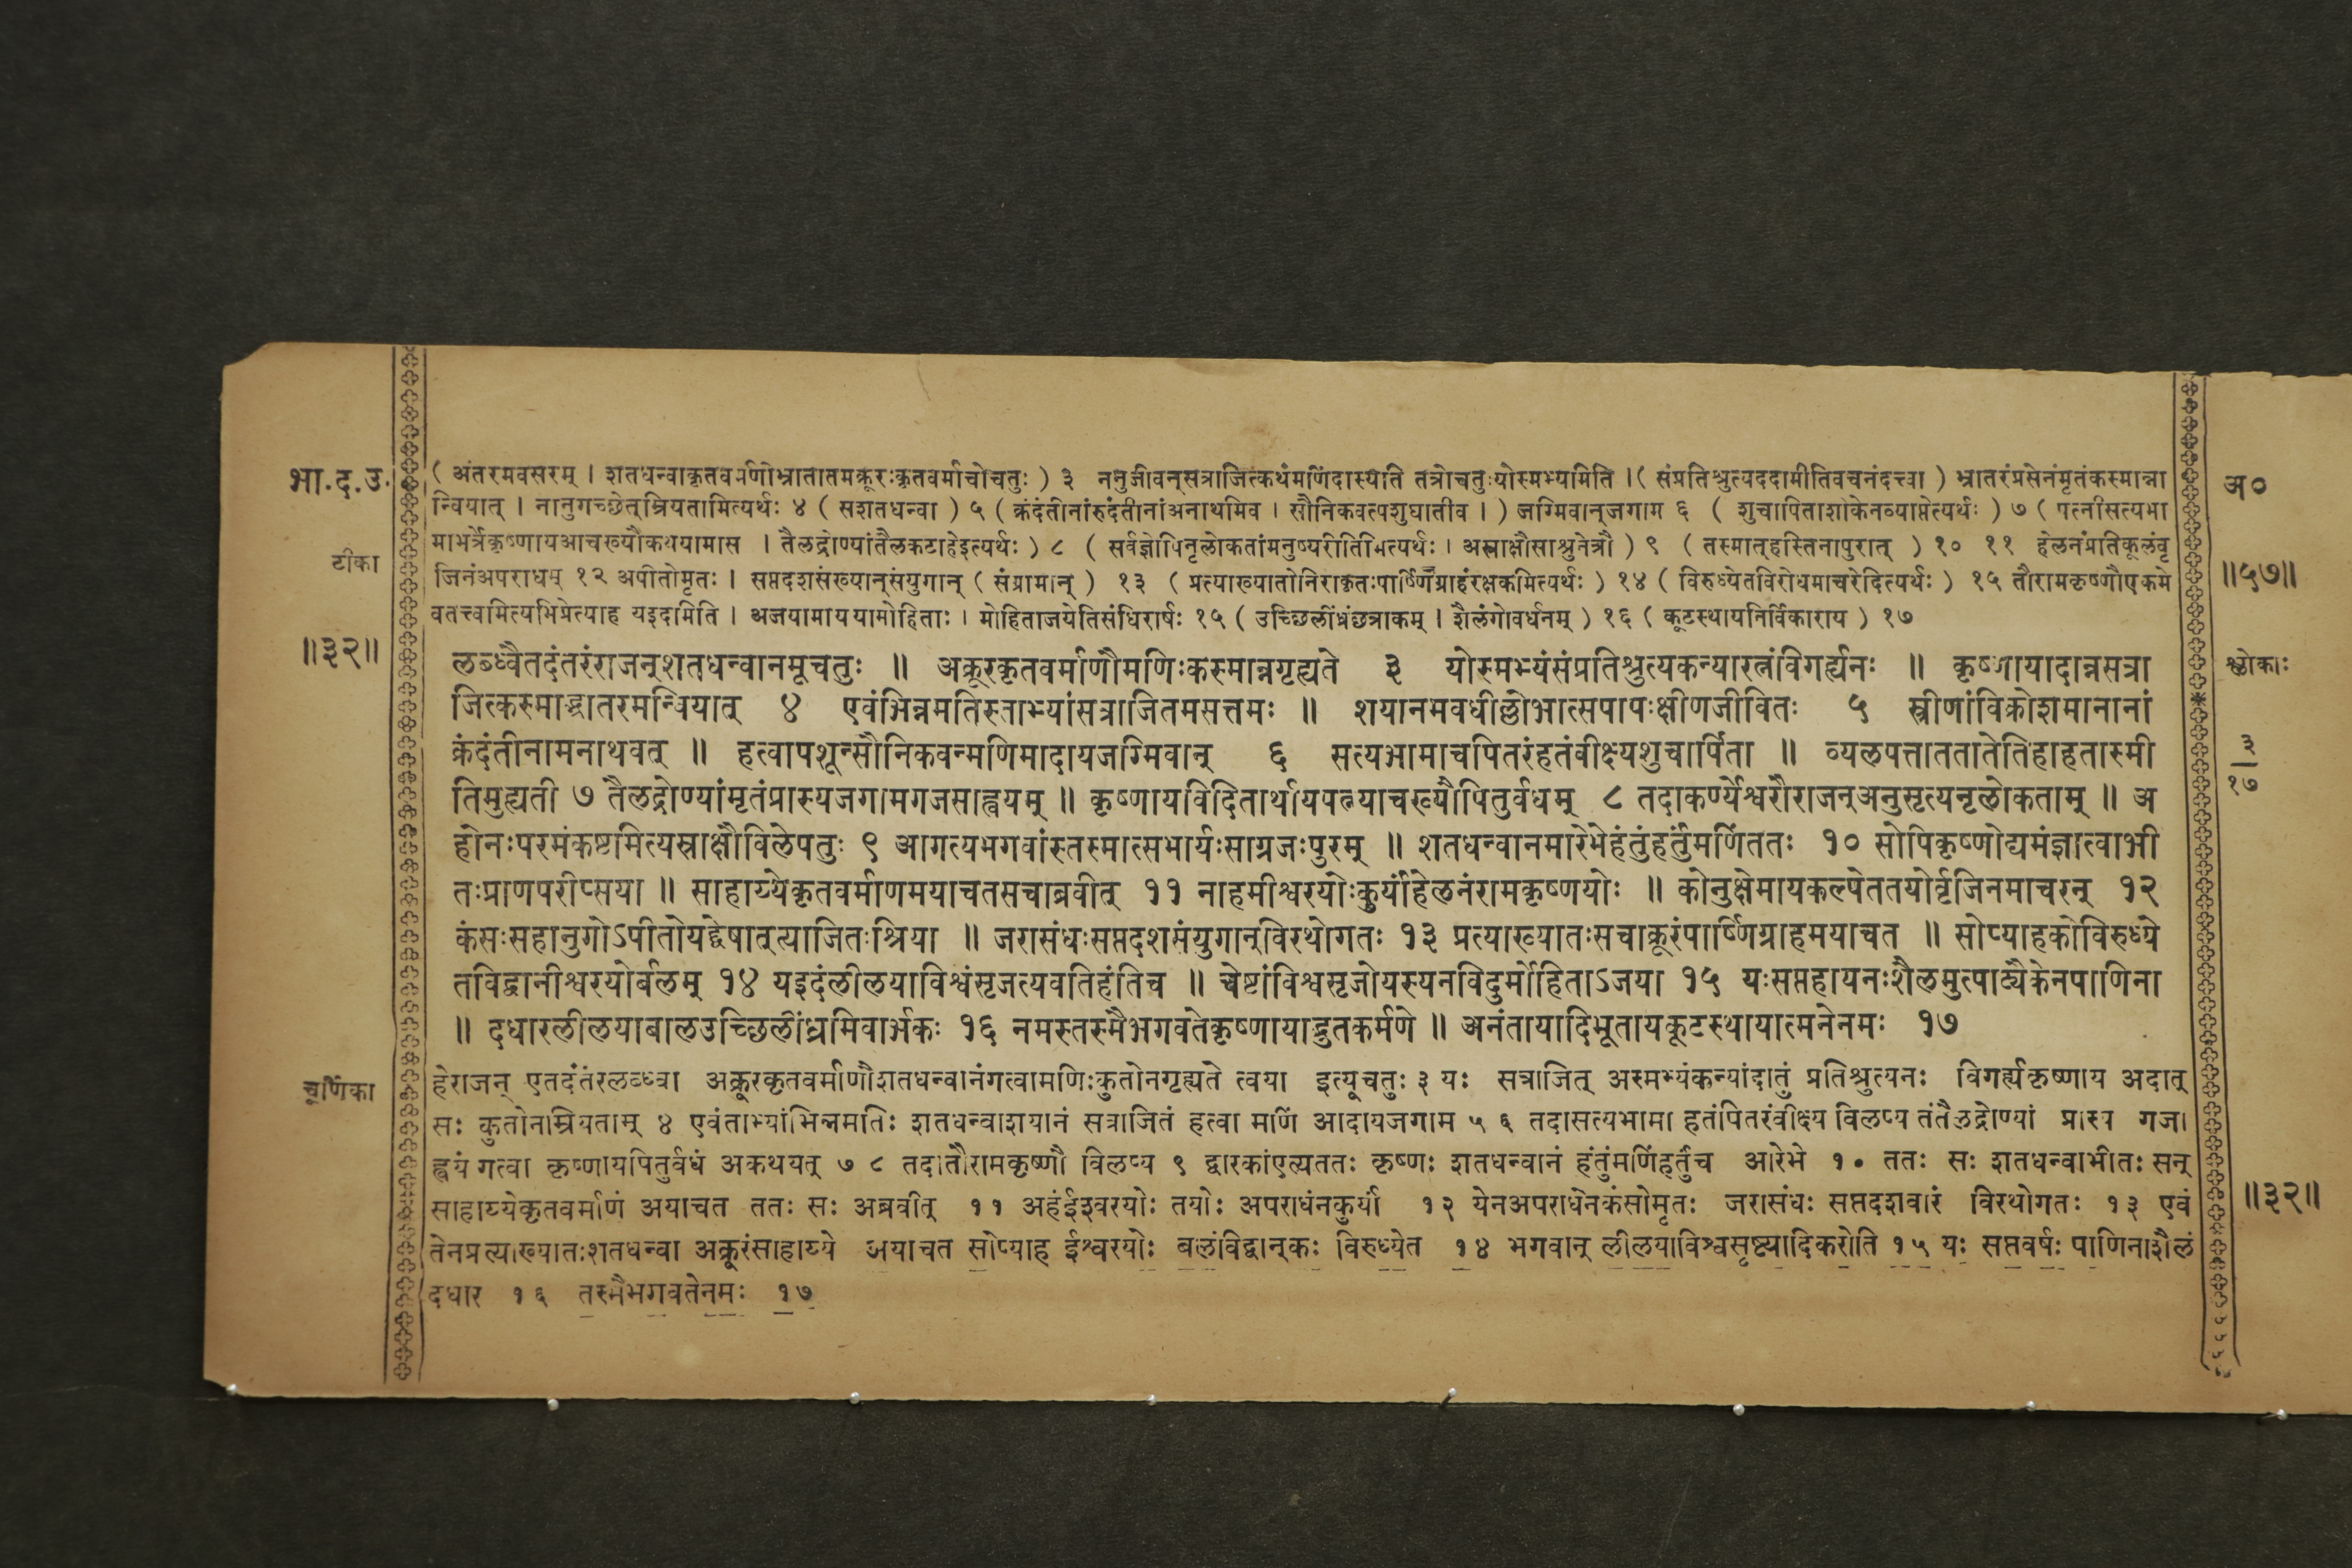 भा.द.उ.
( अंतरमवसरम् । शतधन्वाकृतवर्मणोभ्रातातमक्रूरःकृतवर्माचोचतुः ) ३ ननुजीवन्सत्राजित्कथंमणिंदास्यति तत्रोचतुःयोस्मभ्यमिति । ( संप्रतिश्रुत्यददामीतिवचनंदत्त्वा ) भ्रातरंप्रसेनंमृतंकस्मान्ना
अ०
न्वियात् । नानुगच्छेत्म्रियतामित्यर्थः ४ ( सशतधन्वा ) ५ ( क्रंदंतीनांरुदंतीनांअनाथमिव । सौनिकवत्पशुघातीव । ) जग्मिवान्जगाम ६ ( शुचापिताशोकेनव्याप्तेत्यर्थः ) ७ ( पत्नीसत्यभा
टीका
माभर्त्रेकृष्णायआचख्यौकथयामास । तैलद्रोण्यांतैलकटाहेइत्यर्थः ) ८ ( सर्वज्ञोपिनृलोकतांमनुष्यरीतिमित्यर्थः । अस्राक्षौसाश्रुनेत्रौ ) ९ ( तस्मात्हस्तिनापुरात् ) १० ११ हेलनंप्रतिकूलंवृ
जिनंअपराधम् १२ अपीतोमृतः । सप्तदशसंख्यान्संयुगान् ( संग्रामान् ) १३ ( प्रत्याख्यातोनिराकृतःपार्ष्णिग्राहंरक्षकमित्यर्थः ) १४ ( विरुध्येतविरोधमाचरेदित्यर्थः ) १५ तौरामकृष्णौएकमे
॥५७॥
वतत्त्वमित्यभिप्रेत्याह यइदमिति । अजयामाययामोहिताः । मोहिताजयेतिसंधिरार्षः १५ ( उच्छिलींध्रंछत्राकम् । शैलंगोवर्धनम् ) १६ ( कूटस्थायनिर्विकाराय ) १७
॥३२॥
लब्ध्वैतदंतरंराजन्शतधन्वानमूचतुः ॥ अक्रूरकृतवर्माणौमणिःकस्मान्नगृह्यते ३ योस्मभ्यंसंप्रतिश्रुत्यकन्यारत्नंविगर्ह्यनः ॥ कृष्णायादान्नसत्रा
श्लोकाः
जित्कस्माद्भ्रातरमन्वियात् ४ एवंभिन्नमतिस्ताभ्यांसत्राजितमसत्तमः ॥ शयानमवधील्लोभात्सपापःक्षीणजीवितः ५ स्त्रीणांविक्रोशमानानां
क्रंदंतीनामनाथवत् ॥ हत्वापशून्सौनिकवन्मणिमादायजग्मिवान् ६ सत्यभामाचपितरंहतंवीक्ष्यशुचार्पिता ॥ व्यलपत्ताततातेतिहाहतास्मी
३
१७
तिमुह्यती ७ तैलद्रोण्यांमृतंप्रास्यजगामगजसाह्वयम् ॥ कृष्णायविदितार्थायपत्न्याचख्यौपितुर्वधम् ८ तदाकर्ण्येश्वरौराजन्अनुसृत्यनृलोकताम् ॥ अ
होनःपरमंकष्टमित्यस्राक्षौविलेपतुः ९ आगत्यभगवांस्तस्मात्सभार्यःसाग्रजःपुरम् ॥ शतधन्वानमारेभेहंतुंहर्तुंमणिंततः १० सोपिकृष्णोद्यमंज्ञात्वाभी
तःप्राणपरीप्सया ॥ साहाय्येकृतवर्माणमयाचतसचाब्रवीत् ११ नाहमीश्वरयोःकुर्यांहेलनंरामकृष्णयोः ॥ कोनुक्षेमायकल्पेततयोर्वृजिनमाचरन् १२
कंसःसहानुगोऽपीतोयद्द्वेषात्त्याजितःश्रिया ॥ जरासंधःसप्तदशसंयुगान्विरथोगतः १३ प्रत्याख्यातःसचाक्रूरंपार्ष्णिग्राहमयाचत ॥ सोप्याहकोविरुध्ये
तविद्वानीश्वरयोर्बलम् १४ यइदंलीलयाविश्वंसृजत्यवतिहंतिच ॥ चेष्टांविश्वसृजोयस्यनविदुर्मोहिताऽजया १५ यःसप्तहायनःशैलमुत्पाट्यैकेनपाणिना
॥ दधारलीलयाबालउच्छिलींध्रमिवार्भकः १६ नमस्तस्मैभगवतेकृष्णायाद्भुतकर्मणे ॥ अनंतायादिभूतायकूटस्थायात्मनेनमः १७
चूर्णिका
हेराजन् एतदंतंरलब्ध्वा अक्रूरकृतवर्माणौशतधन्वानंगत्वामणिःकुतोनगृह्यते त्वया इत्यूचतुः ३ यः सत्राजित् अस्मभ्यंकन्यांदातुं प्रतिश्रुत्यनः विगर्ह्यकृष्णाय अदात्
सः कुतोनम्रियताम् ४ एवंताभ्यांभिन्नमतिः शतधन्वाशयानं सत्राजितं हत्वा मणिं आदायजगाम ५ ६ तदासत्यभामा हतंपितरंवीक्ष्य विलप्य तंतैलद्रोण्यां प्रास्य गजा
ह्वयं गत्वा कृष्णायपितुर्वधं अकथयत् ७ ८ तदातौरामकृष्णौ विलप्य ९ द्वारकांएत्यततः कृष्णः शतधन्वानं हंतुंमणिंहर्तुंच आरेभे १० ततः सः शतधन्वाभीतः सन्
साहाय्येकृतवर्माणं अयाचत ततः सः अब्रवीत् ११ अहंईश्वरयोः तयोः अपराधंनकुर्यां १२ येनअपराधेनकंसोमृतः जरासंधः सप्तदशवारं विरथोगतः १३ एवं
॥३२॥
तेनप्रत्याख्यातःशतधन्वा अक्रूरंसाहाय्ये अयाचत सोप्याह ईश्वरयोः बलंविद्वान्कः विरुध्येत १४ भगवान् लीलयाविश्वसृष्ट्यादिकरोति १५ यः सप्तवर्षः पाणिनाशैलं
दधार १६ तस्मैभगवतेनमः १७